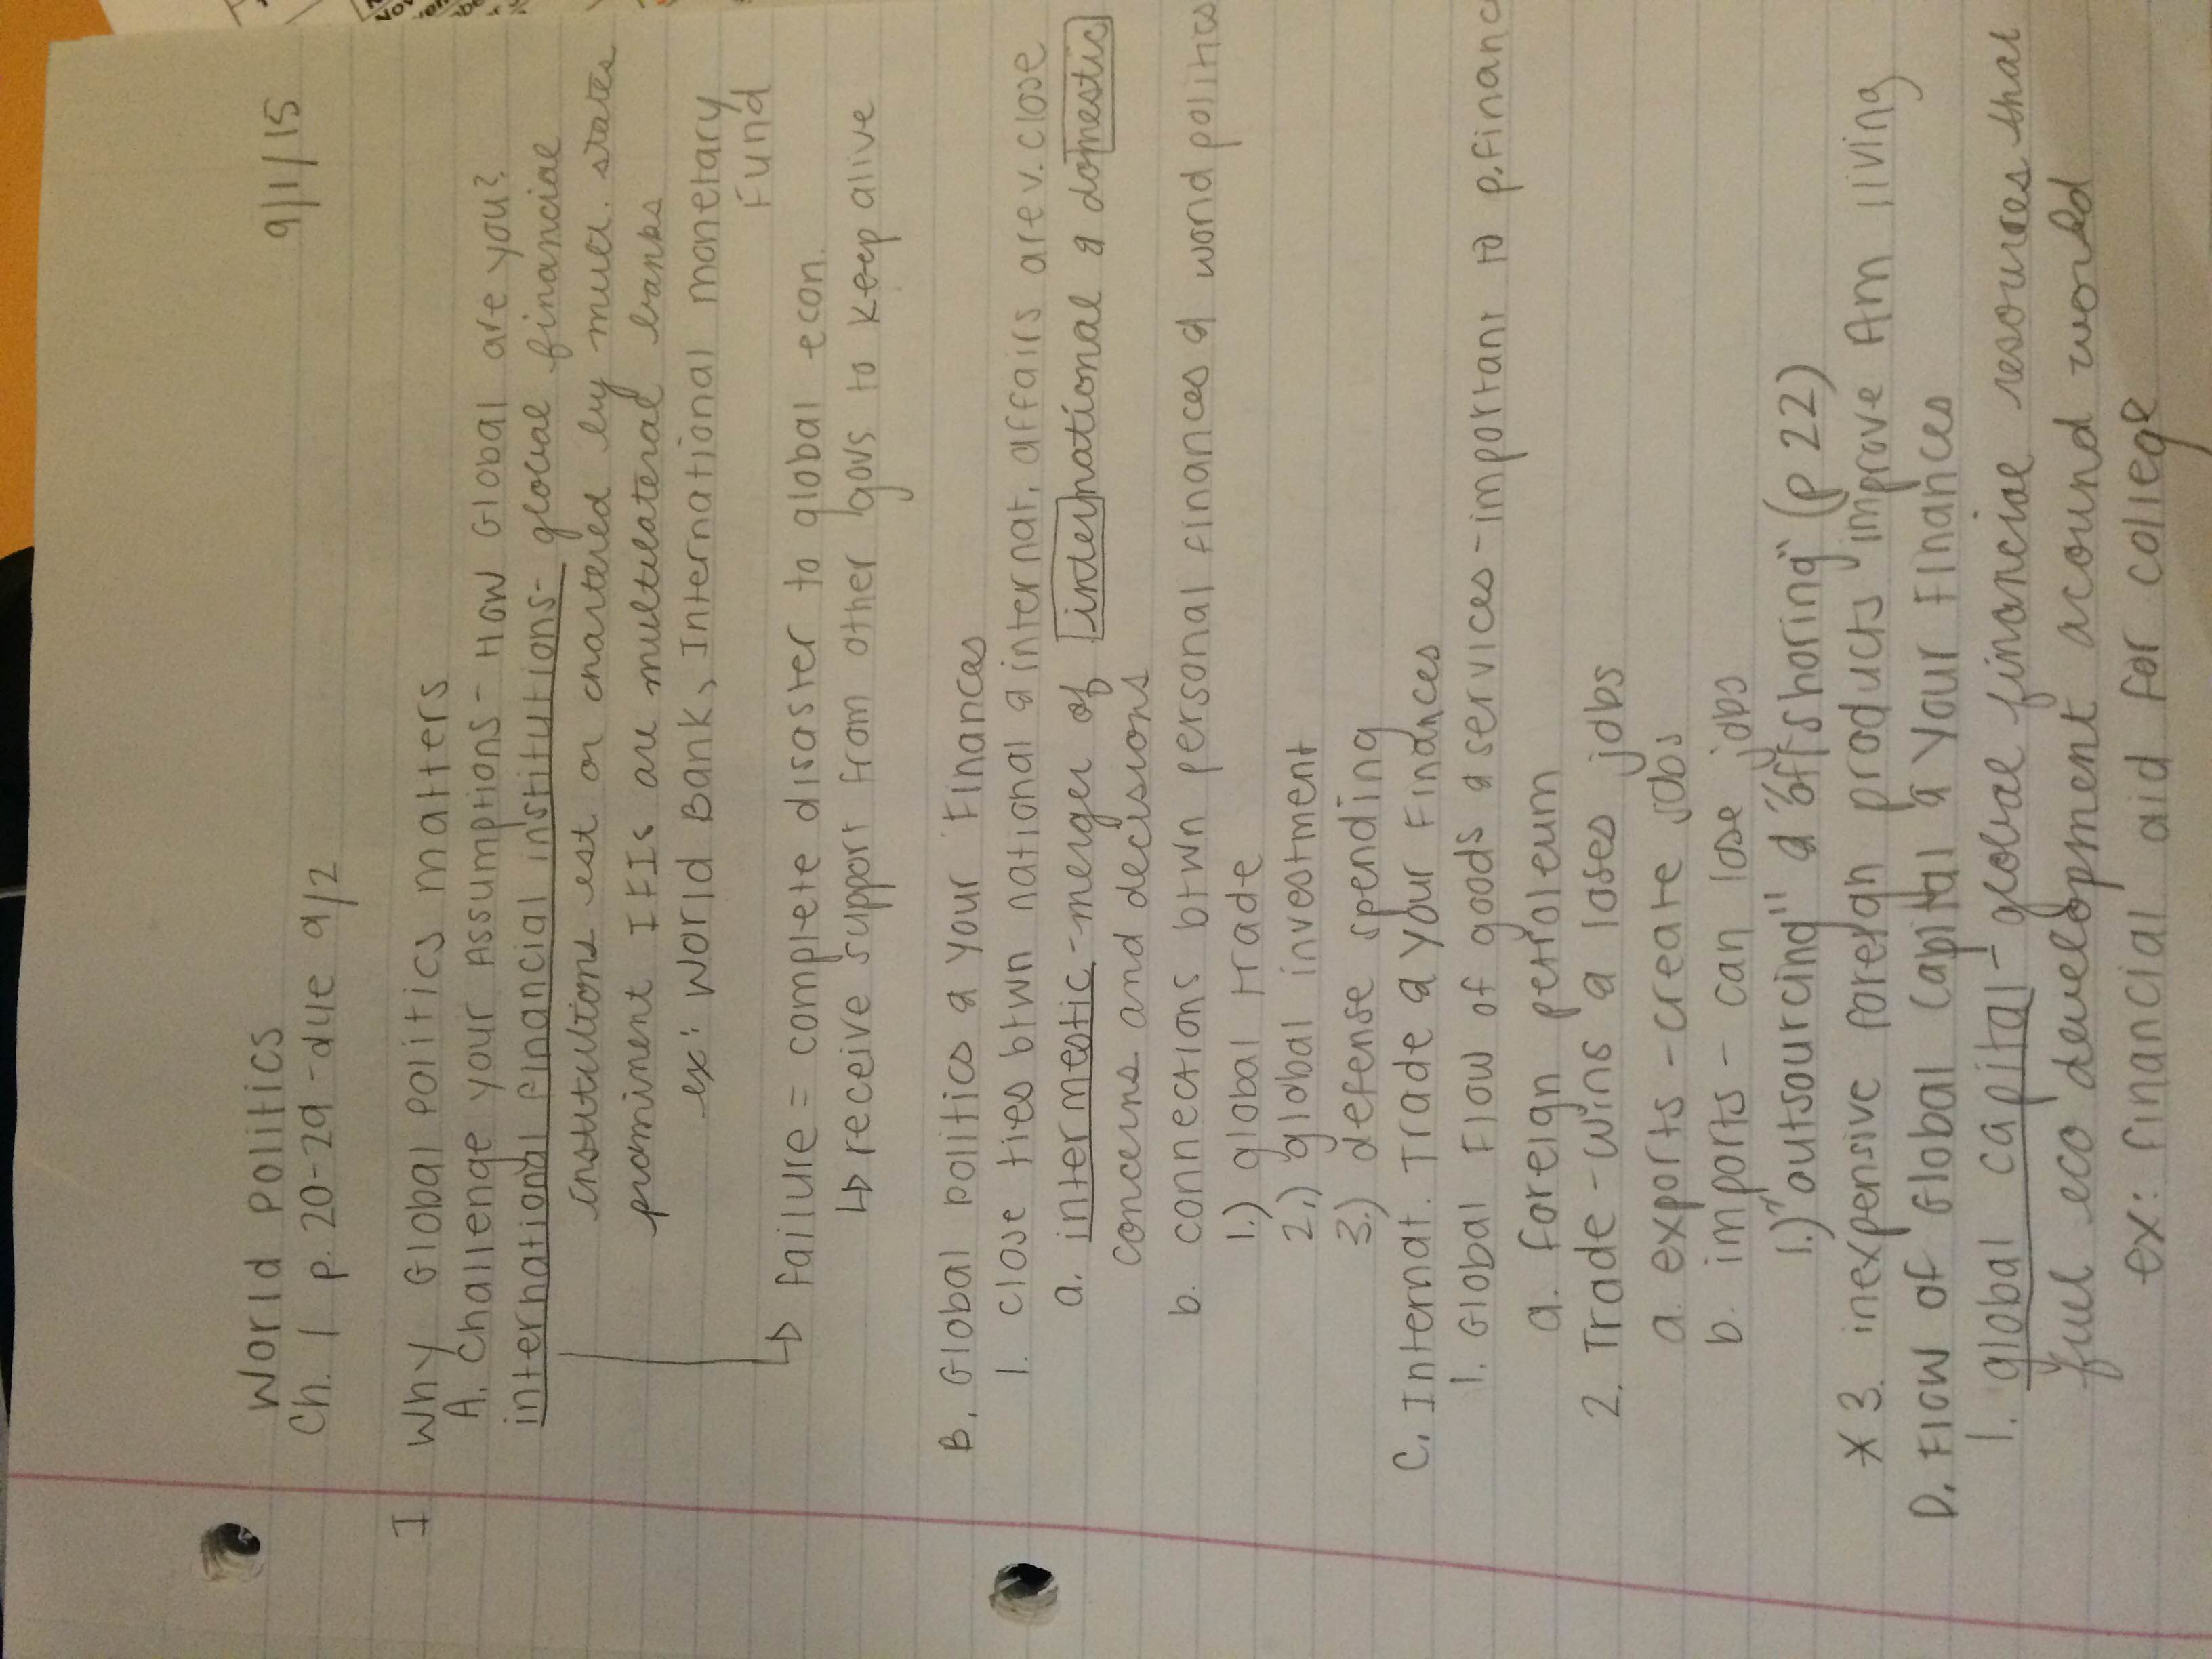 World Politics 9/1/15
Ch. 1 p. 20-29 - due 9/2
I Why Global Politics Matters
A. Challenge your Assumptions - How Global are you?
international financial institutions - global financial
institutions est or chartered by mult. states
prominent IFIs are multilateral banks
ex: World Bank, International Monetary
Fund
↳ failure = complete disaster to global econ.
↳ receive support from other govs to keep alive
B. Global politics & your Finances
1. Close ties btwn national & internat. affairs are v. close
a. intermestic - merger of international & domestic
concerns and decisions
b. connections btwn personal finances & world politics
1.) global trade
2.) global investment
3.) defense spending
C. Internat. Trade & your Finances
1. Global Flow of goods & services - important to p. financ
a. foreign petroleum
2. Trade - wins & loses jobs
a. exports - create jobs
b. imports - can lose jobs
1.) "outsourcing" & "offshoring" (p 22)
* 3. inexpensive foreign products improve Am living
D. Flow of Global Capital & Your Finances
1. global capital - global financial resources that
fuel eco development around world
ex: financial aid for college